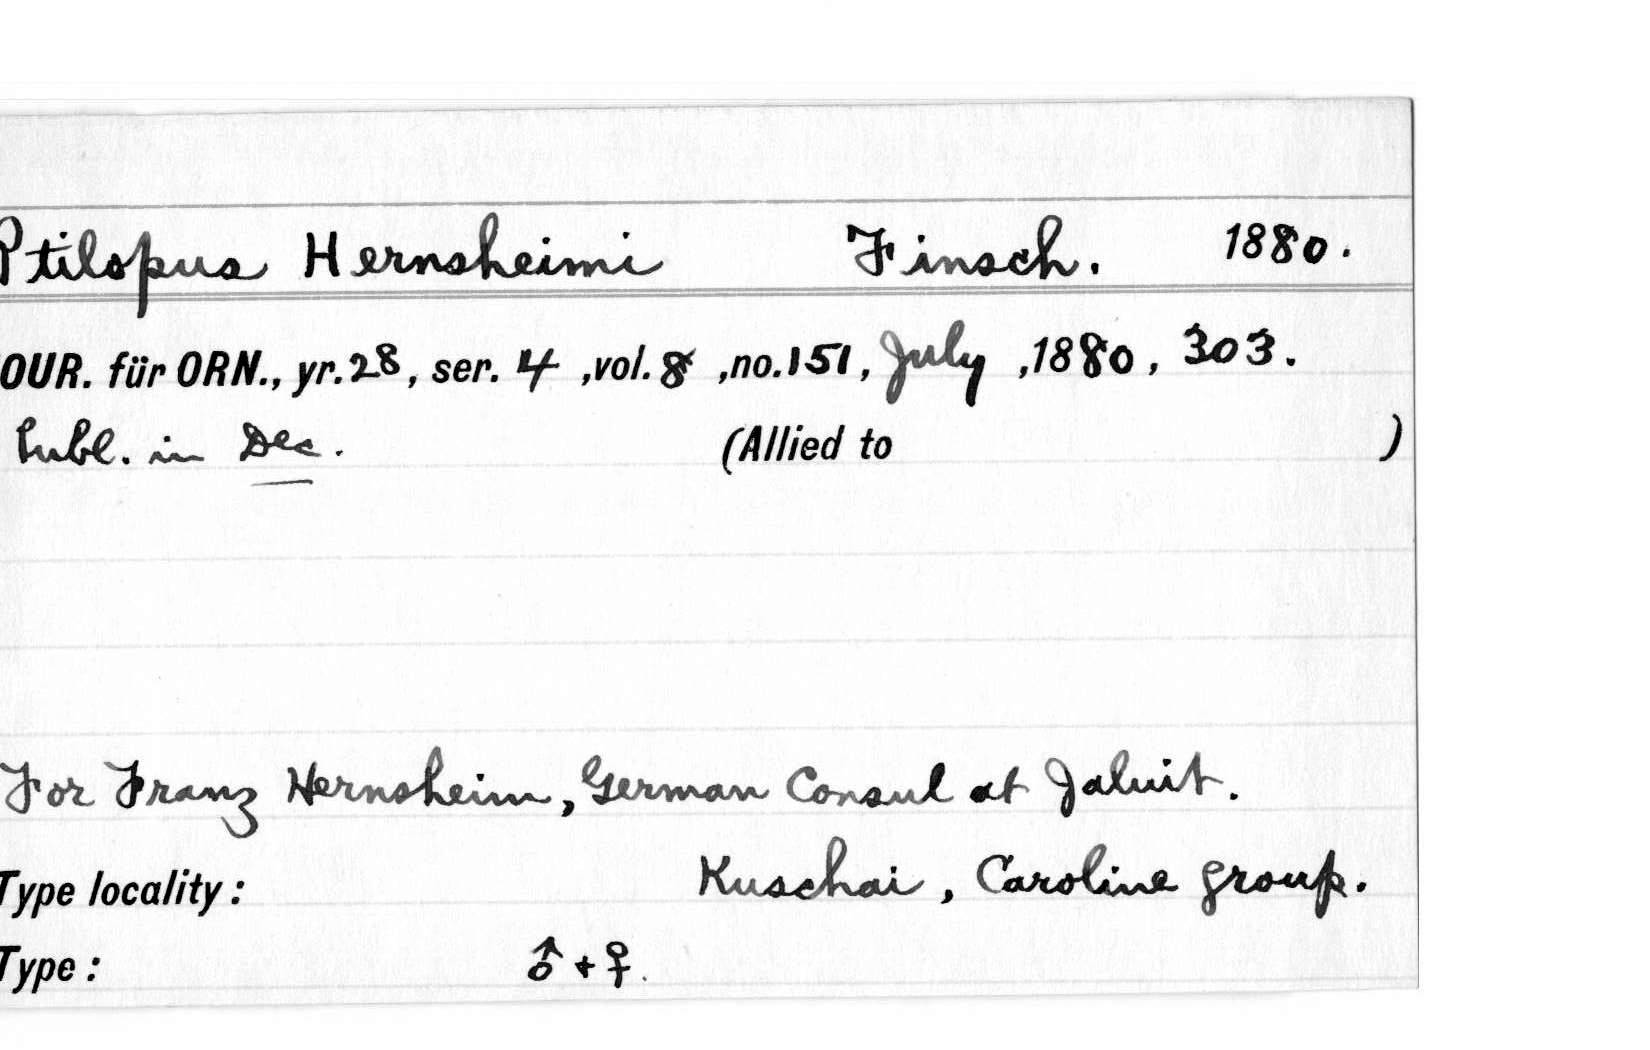 Ptilopus Hernsheimi Finsch. 1880.
OUR. für ORN., yr. 28, ser. 4 ,vol. 8 ,no. 151, July ,1880, 303.
Publ. in Dec. (Allied to )
For Franz Hernsheim, German Consul at Jaluit.
Type locality: Kuschai, Caroline group.
Type: ♂ + ♀.